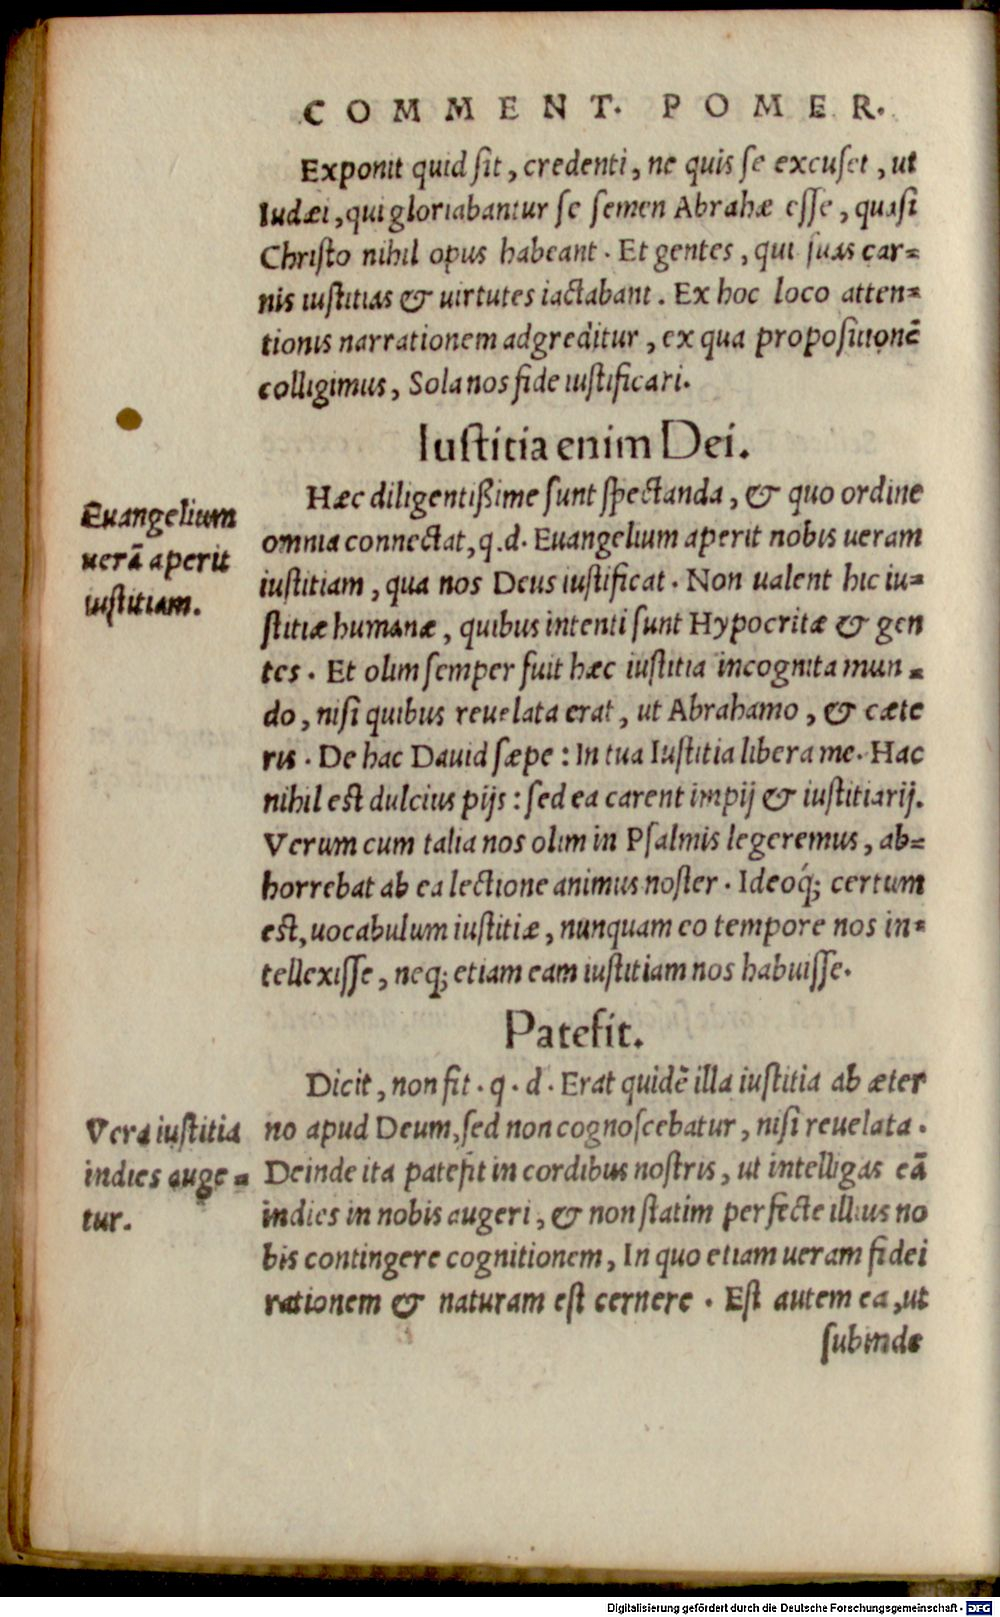 COMMENT. POMER.
Exponit quid ſit, credenti, ne quis ſe excuſet, ut
Iudæi, qui gloriabantur ſe ſemen Abrahæ eſſe, quaſi
Chriſto nihil opus habeant. Et gentes, qui ſuas car=
nis iuſtitias & uirtutes iactabant. Ex hoc loco atten=
tionis narrationem adgreditur, ex qua propoſitionē
colligimus, Sola nos fide iuſtificari.
Iuſtitia enim Dei.
Hæc diligentißime ſunt ſpectanda, & quo ordine
omnia connectat, q.d. Euangelium aperit nobis ueram
iuſtitiam, qua nos Deus iuſtificat. Non ualent hic iu=
ſtitiæ humanæ, quibus intenti ſunt Hypocritæ & gen
tes. Et olim ſemper fuit hæc iuſtitia incognita mun=
do, niſi quibus reuelata erat, ut Abrahamo, & cæte
ris. De hac Dauid ſæpe: In tua Iuſtitia libera me. Hac
nihil eſt dulcius pijs: ſed ea carent impij & iuſtitiarij.
Verum cum talia nos olim in Pſalmis legeremus, ab=
horrebat ab ea lectione animus noſter. Ideoq́; certum
eſt, uocabulum iuſtitiæ, nunquam eo tempore nos in=
tellexiſſe, neq; etiam eam iuſtitiam nos habuiſſe.
Euangelium
uerā aperit
iuſtitiam.
Patefit.
Dicit, non fit. q. d. Erat quidē illa iuſtitia ab æter
no apud Deum, ſed non cognoſcebatur, niſi reuelata.
Deinde ita patefit in cordibus noſtris, ut intelligas eā
indies in nobis augeri, & non ſtatim perfecte illius no
bis contingere cognitionem, In quo etiam ueram fidei
rationem & naturam eſt cernere. Eſt autem ea, ut
ſubinde
Vera iuſtitia
indies auge=
tur.
Digitalisierung gefördert durch die Deutsche Forschungsgemeinschaft - DFG